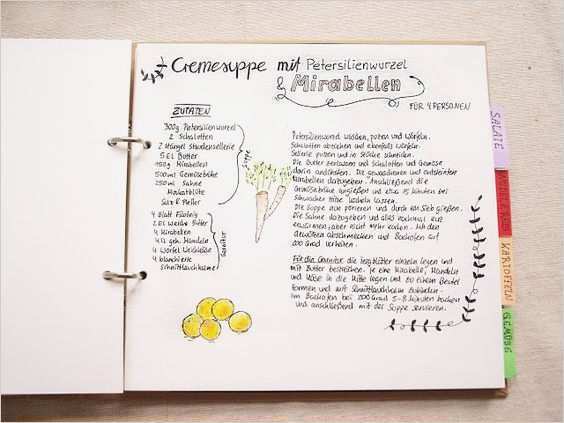 Cremesuppe mit Petersilienwurzel
& Mirabellen
FÜR 4 PERSONEN
ZUTATEN
300g Petersilienwurzel
2 Schalotten
2 Stängel Staudensellerie
5 EL Butter
450g Mirabellen
500ml Gemüsebrühe
250ml Sahne
Muskatblüte
Salz & Pfeffer
Suppe
4 Blatt Filoteig
2 EL weiche Butter
4 Mirabellen
4 EL geh. Mandeln
4 Würfel
4 blanchierte
Schnittlauchhalme
Garnitur
Petersilienwurzel waschen, putzen und würfeln.
Schalotten abziehen und ebenfalls würfeln.
Sellerie putzen und in Stücke schneiden.
Die Butter zerlassen und Schalotten und Gemüse
darin andünsten. Die gewaschenen und entsteinten
Mirabellen dazugeben. Anschließend die
Gemüsebrühe angießen und etwa 15 Minuten bei
schwacher Hitze köcheln lassen.
Die Suppe nun pürieren und durch ein Sieb gießen.
Die Sahne dazugeben und alles nochmal kurz
erwärmen, aber nicht mehr kochen. Mit den
Gewürzen abschmecken und Backofen auf
200 Grad vorheizen.
Für die Garnitur die Teigblätter einzeln legen und
mit Butter bestreichen. Je eine Mirabelle, Mandeln
und Käse in die Mitte legen und zu einem Beutel
formen und mit Schnittlauchhalm zubinden.
Im Backofen bei 200 Grad 5-8 Minuten backen
und anschließend mit der Suppe servieren.
SALATE
KARTOFFELN
GEMÜSE